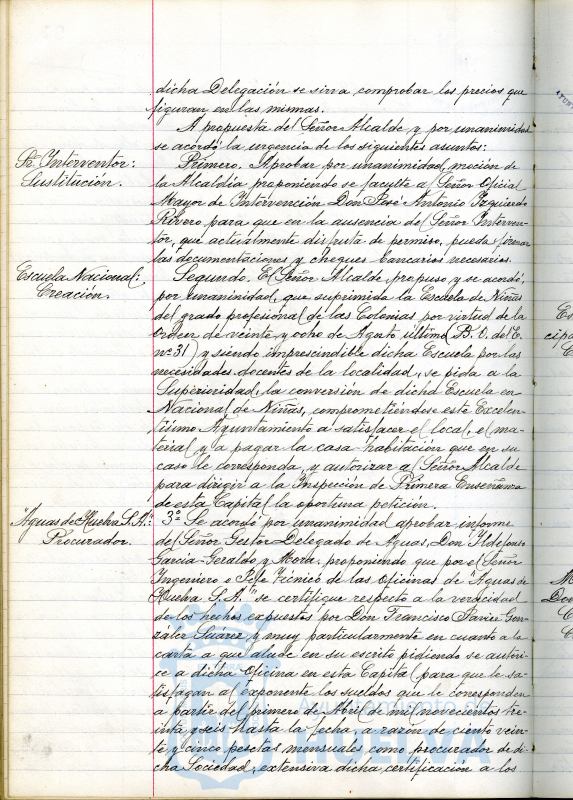 dicha Delegación se sirva comprobar los precios que
figuran en las mismas.
A propuesta del Señor Alcalde y por unanimidad
se acordó la urgencia de los siguientes asuntos:
Sr. Interventor:
Sustitución.
Primero. Aprobar por unanimidad, moción de
la Alcaldía proponiendo se faculte al Señor Oficial
Mayor de Intervención Don José Antonio Izquierdo
Rivero para que en la ausencia del Señor Interven-
tor, que actualmente disfruta de permiso, pueda firmar
las documentaciones y cheques bancarios necesarios.
Escuela Nacional:
Creación.
Segundo. El Señor Alcalde propuso y se acordó,
por unanimidad, que suprimida la Escuela de Niñas
del grado profesional de las Colonias por virtud de la
Orden de veinte y ocho de Agosto último (B. O. del E.
nº 31) y siendo imprescindible dicha Escuela por las
necesidades docentes de la localidad, se pida a la
Superioridad, la conversión de dicha Escuela en
Nacional de Niñas, comprometiéndose este Excelen-
tísimo Ayuntamiento a satisfacer el local, el ma-
terial y a pagar la casa-habitación que en su
caso le corresponda, y autorizar al Señor Alcalde
para dirigir a la Inspección de Primera Enseñanza
de esta Capital la oportuna petición.
"Aguas de Huelva S.A.":
Procurador.
3º Se acordó por unanimidad aprobar informe
del Señor Gestor Delegado de Aguas, Don Ildefonso
García-Geraldo y Mora, proponiendo que por el Señor
Ingeniero o Jefe Técnico de las Oficinas de "Aguas de
Huelva S.A." se certifique respecto a la veracidad
de los hechos expuestos por Don Francisco Javier Gon-
zález Suárez y muy particularmente en cuanto a la
carta a que alude en su escrito pidiendo se autori-
ce a dicha Oficina en esta Capital para que le sa-
tisfagan al exponente los sueldos que le corresponden
a partir del primero de Abril de mil novecientos tre-
inta y seis hasta la fecha, a razón de ciento vein-
te y cinco pesetas mensuales como procurador de di-
cha Sociedad; extensiva dicha certificación a los
Ayuntamiento de
HUELVA